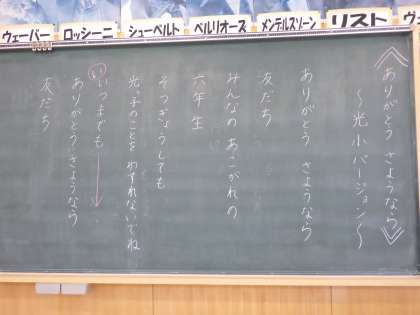 ウェーバー
ロッシーニ
シューベルト
ベルリオーズ
メンデルスゾーン
リスト
ありがとう さようなら
～光小バージョン～
ありがとう さようなら
友だち
みんなの あこがれの
六年生
そつぎょうしても
光っ子のことを わすれないでね
いつまでも
ありがとう さようなら
友だち